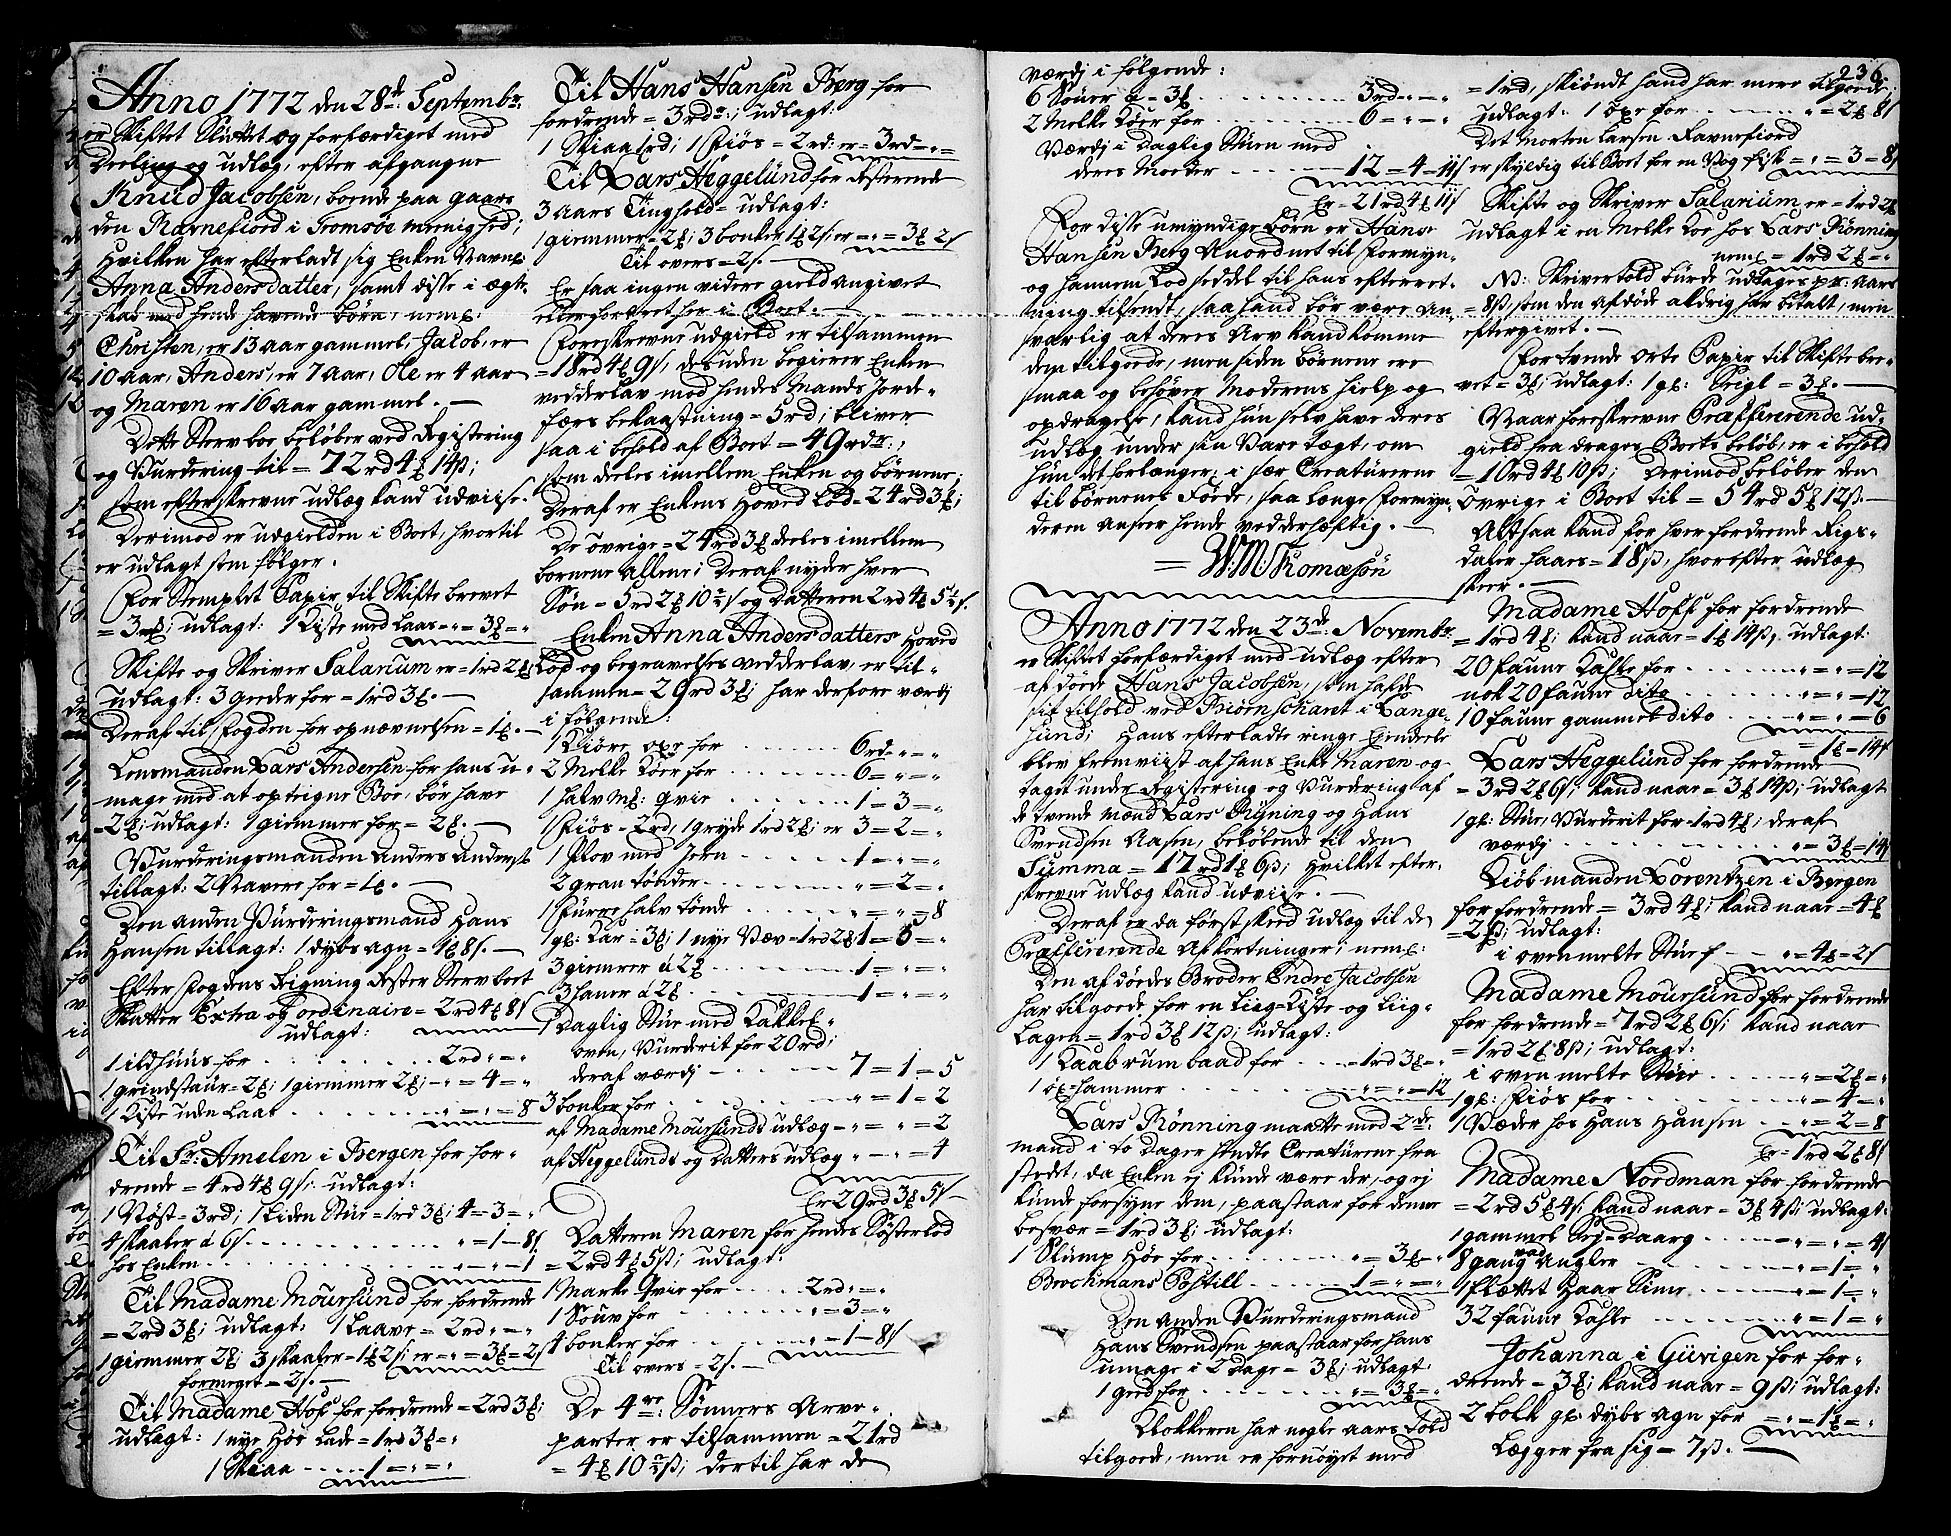 Anno 1772 den 28de Septembr:
er Skiftet Sluttet og forfærdiget med
Deeling og udlæg, efter afgangne
Knud Jacobsen, boende paa gaar-
den Ravnefiord i Tromsøe menighed;
Hvilken har efterladt sig Enken Navnl:
Anna Andersdatter, samt disse i ægte-
skab med hende havende børn, neml:
Christen, er 13 aar gammel, Jacob, er
10 aar, Anders, er 7 aar, Ole er 4 aar
og Maren er 16 aar gammel. —
Dette Sterv boe beløber ved Registering
og Vurdering til = 72 rd 4 ℔ 14 β;
som efterskrevne udlæg kand udviise.
Derimod er udgielden i Boet, hvortil
er udlagt som følger.
For Stemplet Papir til Skifte brevet
= 3 ℔; udlagt: 1 Kiste med Laas = " = 3 ℔ = "
Skifte og Skriver Salarium er = 1 rd 2 ℔;
udlagt: 3 geeder for = 1 rd 3 ℔. —
Deraf til Fogden for opnævnelsen = 1 ℔. —
Lensmanden Lars Andersen for hans u-
mage med at opteigne Boe, bør have
= 2 ℔; udlagt: 1 giemmer for = 2 ℔. —
Vurderingsmanden Anders Anders:
tillagt: 2 Navere for = 1 ℔. —
Den anden Vurderingsmand Hans
Hansen tillagt: 1 dybs agn = 1 ℔ 8 β. —
Efter Fogdens Reigning Rester Sterv boet
Skatter Extra og ordinaire = 2 rd 4 ℔ 8 β
udlagt:
1 ildhuus for 2 rd = " = "
1 grindstaur = 2 ℔; 1 giemmer 2 ℔; = " = 4 = "
1 Kiste uden Laas " = " = 8
Til Sr: Amelen i Bergen for for-
drende = 4 rd 4 ℔ 9 β; udlagt:
1 Nøst = 3 rd; 1 liden Stue = 1 rd 3 ℔; 4 = 3 = "
4 skaaler à 6 β " = 1 = 8 β
hos Enken " = " = 1
Til Madame Moursund for fordrende
= 2 rd 3 ℔; udlagt: 1 Laave = 2 rd = " = "
1 giemmer 2 ℔; 3 skaaler = 1 ℔ 2 β; er = " = 3 ℔ = 2 β
formeget = 2 β. —
Til Madame Hof for fordrende = 2 rd 3 ℔;
udlagt: 1 nye Høe Lade = 1 rd 3 ℔ = "
1 Skiaa 1 = " = "
Til Hans Hansen Berg for
fordrende = 3 rdr:; udlagt:
1 Skiaa 1 rd; 1 Fiøs = 2 rd: er = 3 rd = " = "
Til Lars Heggelund for Resterende
3 aars Tinghold = udlagt:
1 giemmer = 2 ℔; 3 bonker 1 ℔ 2 β; er = " = 3 ℔ 2 β
Til overs = 2 β. —
Er saa ingen videre gield angivet
eller fordret her i Boet. —
Foreskrevne udgield er tilsammen
= 18 rd 4 ℔ 9 β, desuden begierer Enken
vedderlav mod hendes Mands Jorde-
færs bekaastning = 5 rd; bliver
saa i behold af Boet = 49 rdr:,
som deeles imellem Enken og børnene;
Deraf er Enkens Hoved Lod = 24 rd 3 ℔;
De øvrige = 24 rd 3 ℔ deeles imellem
børnene allene; Deraf nyder hver
Søn = 5 rd 2 ℔ 10 ⅔ β og Datteren 2 rd 4 ℔ 5 ⅓ β.
Enken Anna Andersdatters Hoved
Lod og begravelses vedderlav, er til-
sammen = 29 rd 3 ℔; har derfore værdj
i følgende:
1 Kiøre oxe for 6 rd = " = "
2 Melke Køer for 6 = " = "
1 halv Ml: Qvie 1 = 3 = "
1 Fiøs = 2 rd, 1 gryde 1 rd 2 ℔; er 3 = 2 = "
1 Plov med Jern 1 = " = "
2 gran tønder " = 2 = "
1 Furre halv tønde " = " = 8
1 gl: Kar = 3 ℔; 1 nye Væv = 1 rd 2 ℔ 1 = 5 = "
3 giemmer à 2 ℔ 1 = " = "
3 sauer à 2 ℔ 1 = " = "
1 Daglig Stue med Kakkel-
oven, Vurderit for 20 rd;
deraf værdj 7 = 1 = 5
3 bonker for " = 1 = 2
af Madame Moursunds udlæg = " = " = 2
af Heggelunds og Datters udlæg " = " = 4
Er 29 rd 3 ℔ 5 β —
Datteren Maren for hendes Søsterlod
= 2 rd 4 ℔ 5 β; udlagt:
1 Marke Qvie for 2 rd = " = "
1 Souv for " = 3 = "
4 bonker for " = 1 = 8 β
Til overs = 2 β. —
De 4re: Sønners Arve-
parter er tilsammen = 21 rd
= 4 ℔ 10 ⅔ β; dertil har de
værdj i følgende:
6 Souer à = 3 ℔ 3 rd = " = "
2 Melke Køer for 6 = " = "
Værdj i Daglig Stuen med
deres Moder 12 = 4 = 11 β
Er = 21 rd 4 ℔ 11 β
For disse umyndige børn er Hans
Hansen Berg Anordnet til Formyn-
og hannem Lod seddel til hans efterret-
ning tilsendt, saa hand bør være an-
svarlig at deres Arv kand komme
dem tilgoede, men siden børnene ere
smaa og behøver Moderens hielp og
opdragelse, kand hun selv have deres
udlæg under sin Vare tægt, om
hun det forlanger; i sær Creaturerne
til børnenes Føede, saa længe Formyn-
deren anseer hende vedderhæftig. —
= WM Thomesøn
Anno 1772 den 23de: Novembr:
er Skiftet forfærdiget med udlæg efter
af døde Hans Jacobsen, som hafde
sit tilhold ved Biørnskaret i Lange-
sund; Hans efterladte ringe Eiendeele
blev fremviist af hans Enke Maren og
taget under Registering og Vurdering af
de tvende Mænd Lars Rønning og Hans
Svendsen Aasen, beløbende til den
Summa = 17 rd 1 ℔ 6 β; hvilket efter-
skrevne udlæg kand udviise. —
Deraf er da først skeed udlæg til de
Præfererende Afkortninger, neml:
Den af dødes Broder Endre Jacobsen
har tilgoede for en Liig-Kiste og Liig-
Lagen = 1 rd 3 ℔ 12 β; udlagt:
1 Kaabrums baad for 1 rd 3 ℔ = "
1 øx-hammer " = " = 12
Lars Rønning maatte med 2de:
mand i to Dager hente Creaturene fra
stedet, da Enken ej kunde være der, og ej
kunde forsyne dem, paastaar for denne
besvær = 1 rd 3 ℔; udlagt:
1 Slump Høe for " = 3 ℔ = "
Brochmans Postill 1 = " = "
Den anden Vurderingsmand
Hans Svendsen paastaar for hans
umage i 2 Dage = 3 ℔; udlagt:
1 geed for " = 3 ℔ = "
Klokkeren har nogle aars Told
tilgoede, men er fornøyet med
236.
= 1 rd, skiøndt hand har mere tilgoede;
udlagt: 1 oxe for " = 2 ℔ 8 β
Det Morten Larsen Ravnefiord
er skyldig til Boet for en Vog fisk = " = 3 = 8 β
Skifte og Skriver Salarium er = 1 rd 2 ℔
udlagt i en Melke Koe hos Lars Rønning
neml = 1 rd 2 ℔ = "
N: Skrivertold burde udlæges pr: aars
= 8 β, som den afdøde aldrig har betalt, men
eftergivet. —
For tvende Orte Papir til Skifte bre-
vet = 3 ℔; udlagt: 1 gl: Seigl = 3 ℔. —
Naar foreskrevne Præfererende ud-
gield fra drages Boets beløb, er i behold
= 10 rd 4 ℔ 10 β; Derimod beløber den
øvrige i Boet til = 54 rd 5 ℔ 12 β. —
Altsaa kand for hver fordrende Rigs-
daler faaes = 18 β, hvorefter udlæg
skeer. —
Madame Hoff for fordrende
= 1 rd 4 ℔; kand naar = 1 ℔ 14 β, udlagt:
20 faune Kaste for " = " = 12
nok 20 faune dito " = " = 12
10 faune gammel dito " = " = 6
= 1 ℔ = 14 β
Lars Heggelund for fordrende
= 3 rd 2 ℔ 6 β; kand naar = 3 ℔ 14 β; udlagt
1 gl: Stue, Vurderit for 1 rd 4 ℔; deraf
værdj " = 3 ℔ = 14 β
Kiøbmanden Lorentzen i Bergen
for fordrende = 3 rd 4 ℔; kand naar = 4 ℔
= 2 β; udlagt:
i ovenmelte Stue " = 4 ℔ = 2 β
Madame Moursund for fordrende
for fordrende = 7 rd 2 ℔ 6 β; kand naar
= 1 rd 2 ℔ 8 β; udlagt:
i ovenmelte Stue " = 2 ℔ = "
1 gl: Fiøs for " = 4 = "
1 Væder hos Hans Hansen " = 2 = 8
Er = 1 rd 2 ℔ 8 β
Madame Nordman for fordrende
= 2 rd 5 ℔ 4 β; kand naar = 3 ℔ 4 β; udlagt:
1 gammel Sej-Daarg " = " = 4 β
8 gang vaa Angler " = 1 = "
1 Flættet Haar Siime " = 1 = "
32 faune Kaste " = 1 = "
Johanna i Gürigen for for-
drende = 3 ℔; kand naar = 9 β; udlagt:
2 bolk gl: dybs agn for = " = 1 ℔ = "
Lægger fra sig = 7 β. —